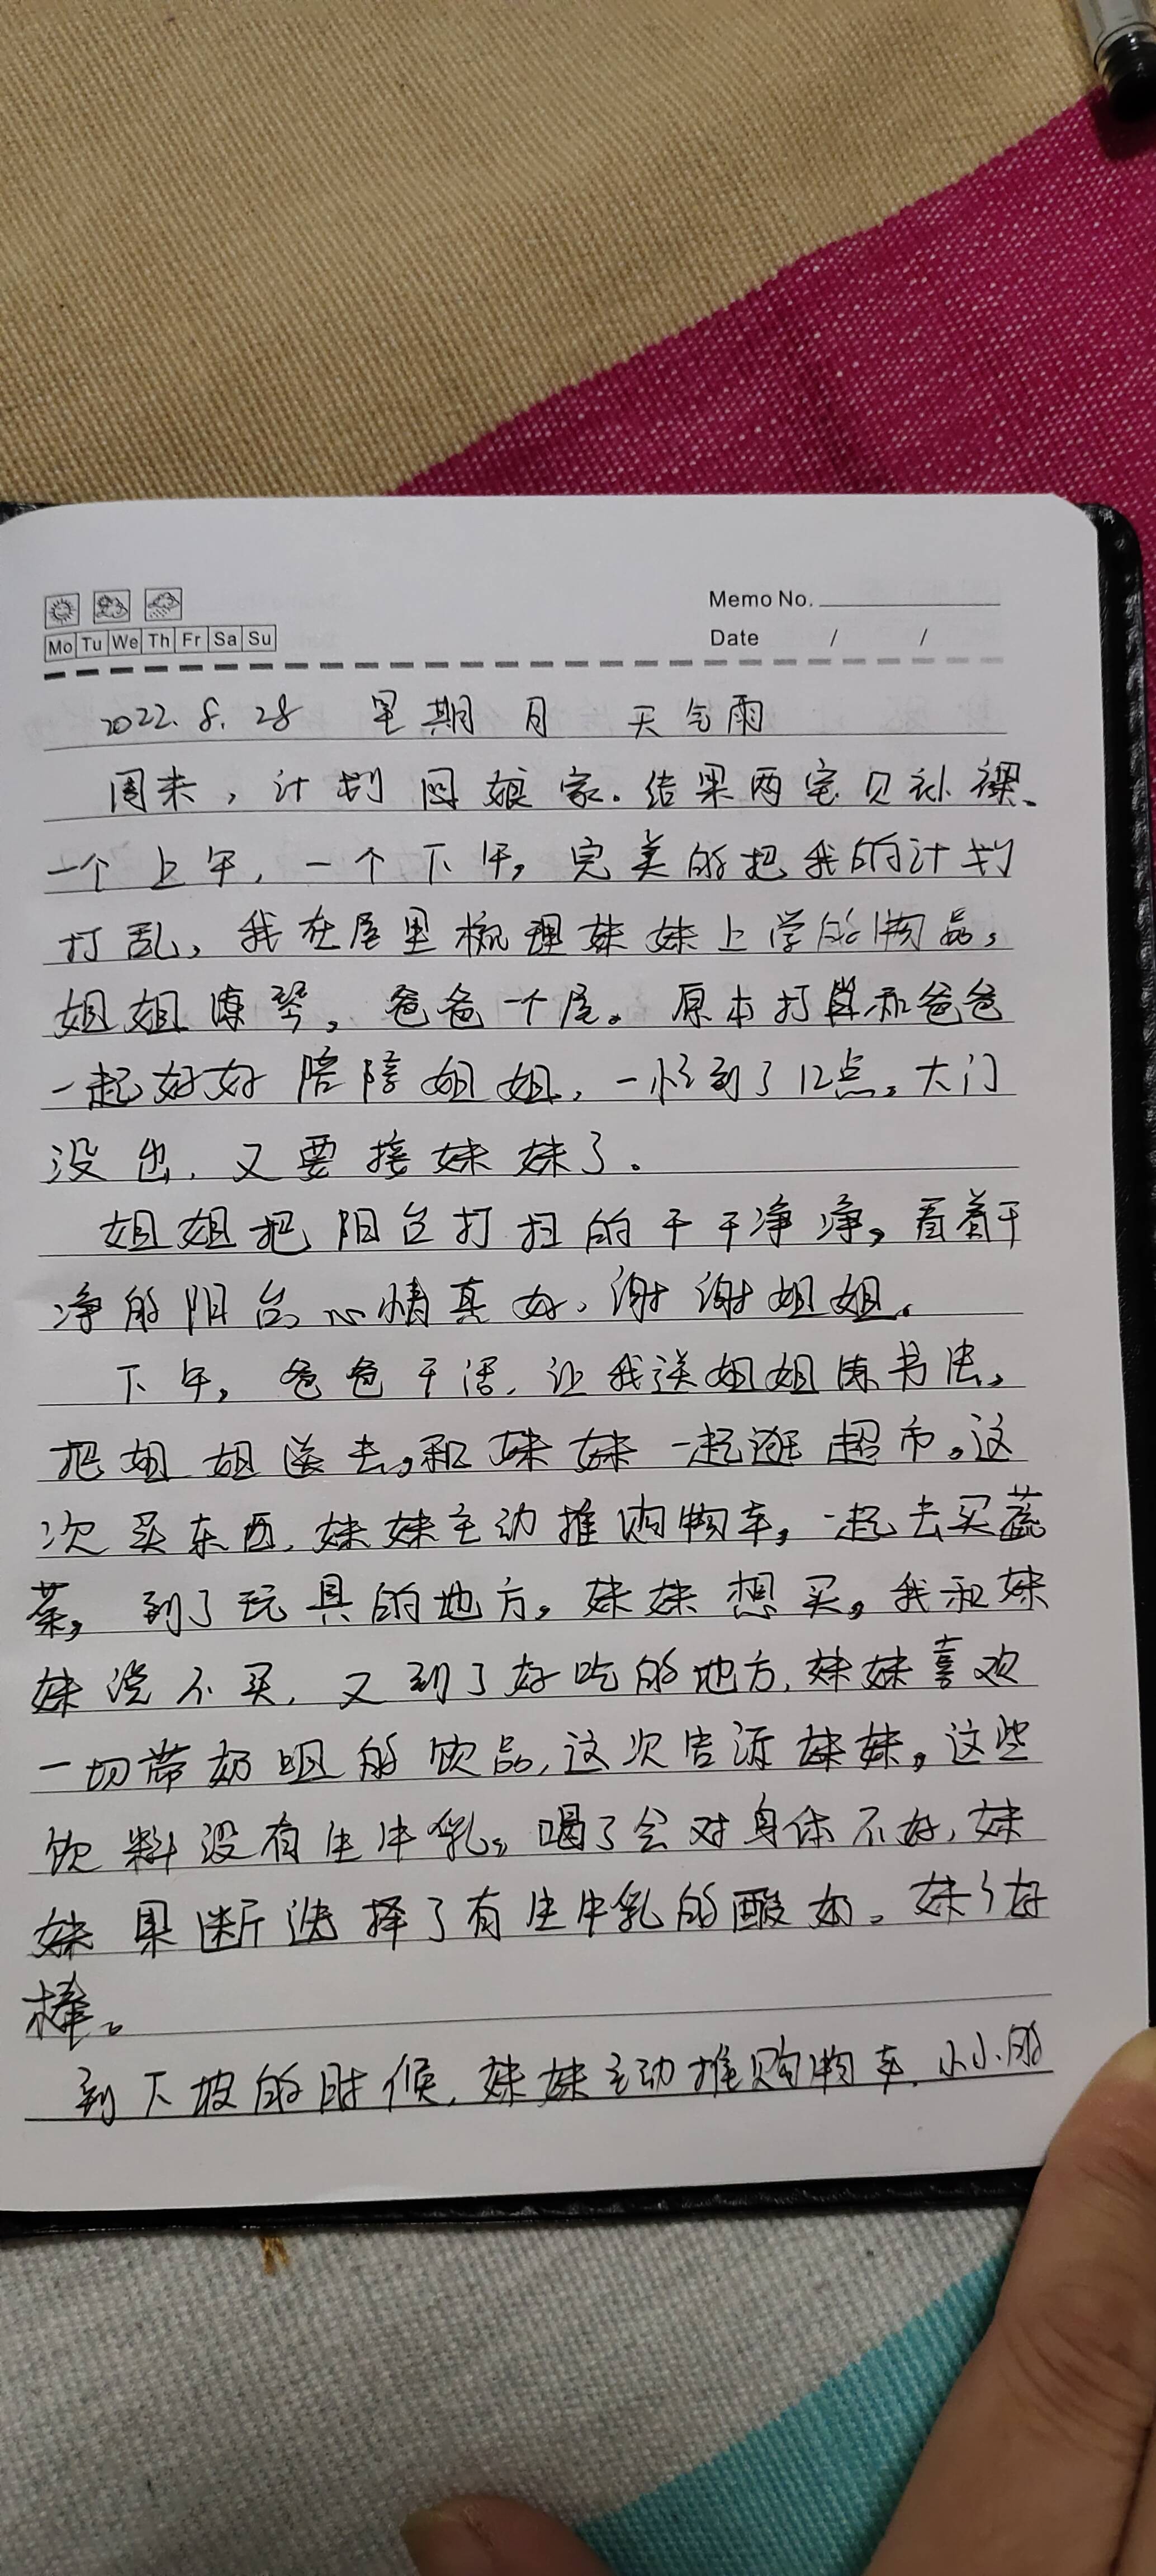 Memo No.
Mo Tu We Th Fr Sa Su
Date / /
2022.8.28 星期日 天气雨
周末，计划回娘家。结果两宝贝补课、
一个上午，一个下午，完美的把我的计划
打乱，我在屋里梳理妹妹上学的物品，
姐姐练琴，爸爸一个屋。原本打算和爸爸
一起好好陪陪姐姐，一忙到了12点，大门
没出，又要接妹妹了。
姐姐把阳台打扫的干干净净，看着干
净的阳台心情真好，谢谢姐姐。
下午，爸爸干活，让我送姐姐练书法，
把姐姐送去，和妹妹一起逛超市。这
次买东西，妹妹主动推购物车，一起去买蔬
菜，到了玩具的地方，妹妹想买，我和妹
妹说不买，又到了好吃的地方，妹妹喜欢
一切带奶的饮品，这次告诉妹妹，这些
饮料没有生牛乳，喝了会对身体不好，妹
妹果断选择了有生牛乳的酸奶。妹々好
棒。
到下坡的时候，妹妹主动推购物车，小小的